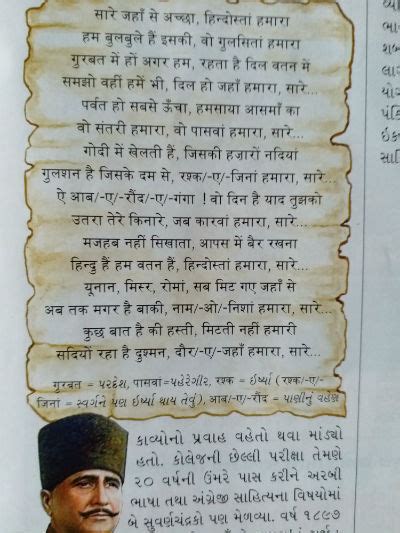 सारे जहाँ से अच्छा, हिन्दोस्तां हमारा
हम बुलबुले हैं इसकी, वो गुलसितां हमारा
गुरबत में हों अगर हम, रहता है दिल वतन में
समझो वहीं हमें भी, दिल हो जहाँ हमारा, सारे...
पर्वत हो सबसे ऊँचा, हमसाया आसमाँ का
वो संतरी हमारा, वो पासवां हमारा, सारे...
गोदी में खेलती हैं, जिसकी हज़ारों नदियां
गुलशन है जिसके दम से, रश्क/-ए/-जिनां हमारा, सारे...
ऐ आब/-ए/-रौंद/-ए/-गंगा ! वो दिन है याद तुझको
उतरा तेरे किनारे, जब कारवां हमारा, सारे...
मजहब नहीं सिखाता, आपस में बैर रखना
हिन्दु हैं हम वतन हैं, हिन्दोस्तां हमारा, सारे...
यूनान, मिस्र, रोमां, सब मिट गए जहाँ से
अब तक मगर है बाकी, नाम/-ओ/-निशां हमारा, सारे...
कुछ बात है की हस्ती, मिटती नहीं हमारी
सदियों रहा है दुश्मन, दौर/-ए/-जहाँ हमारा, सारे...
गुरबत = પરદેશ, पासवां=પહેરેગીર, रश्क = ઈર્ષ્યા (रश्क/-ए/-
जिनां = સ્વર્ગને પણ ઈર્ષ્યા થાય તેવું), आब/-ए/-रौंद = પાણીનું વહેણ
કાવ્યોનો પ્રવાહ વહેતો થવા માંડ્યો
હતો. કોલેજની છેલ્લી પરીક્ષા તેમણે
૨૦ વર્ષની ઉંમરે પાસ કરીને અરબી
ભાષા તથા અંગ્રેજી સાહિત્યના વિષયોમાં
બે સુવર્ણચંદ્રકો પણ મેળવ્યા. વર્ષ ૧૮૯૭